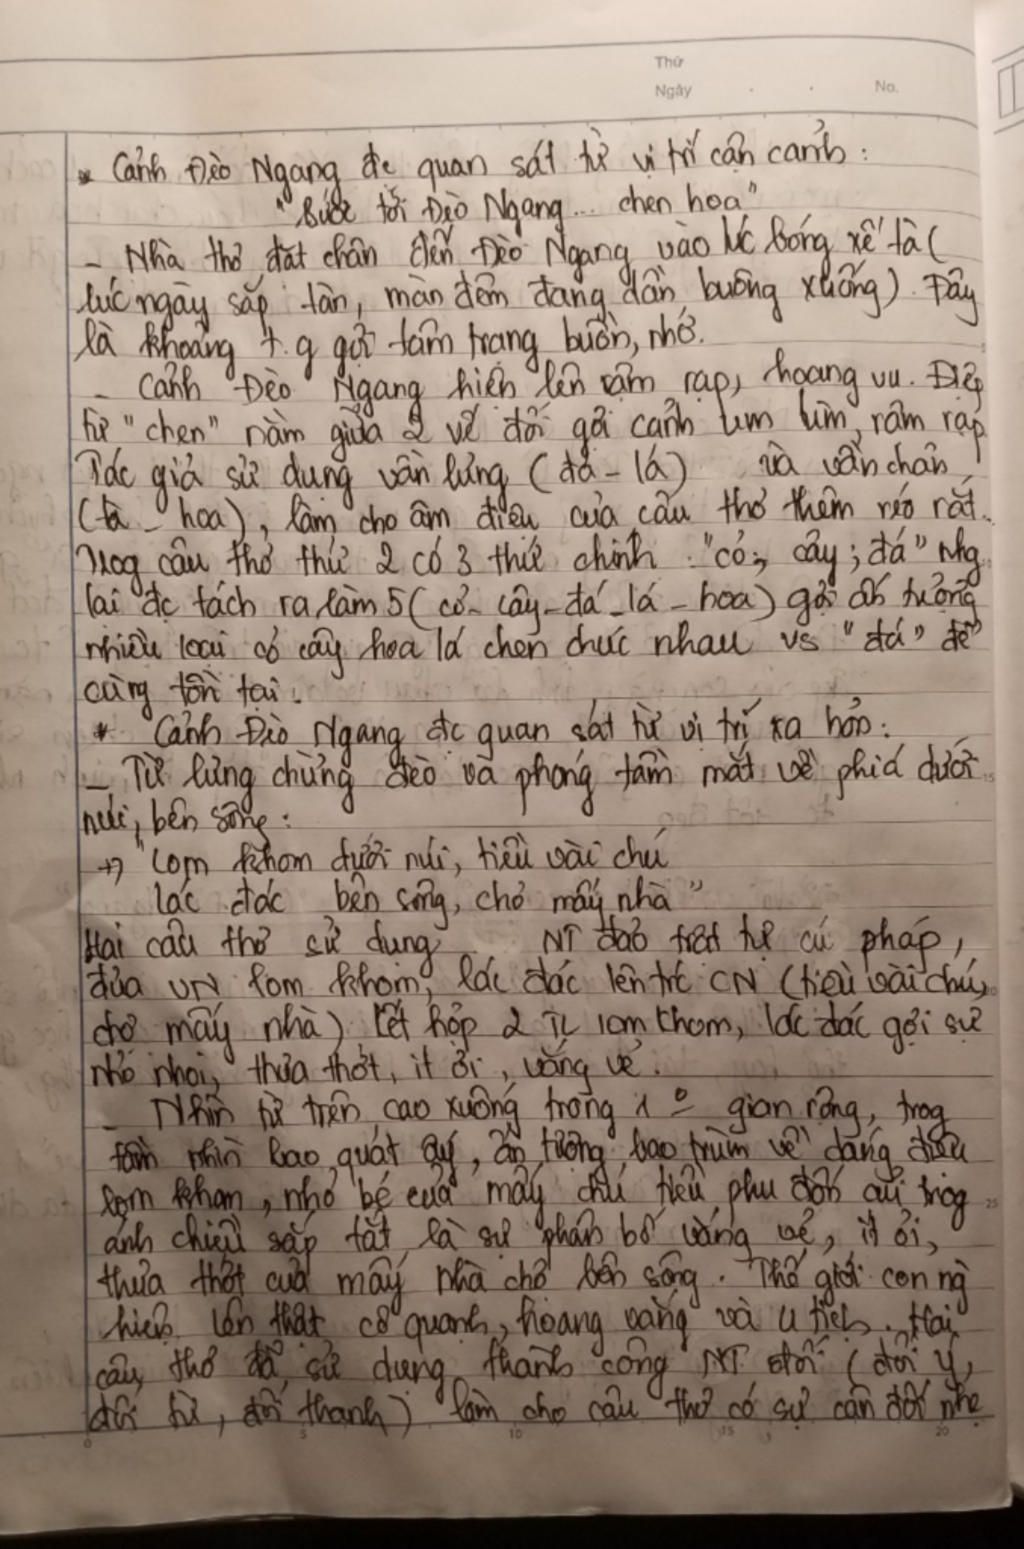 Thứ
Ngày . . No.
* Cảnh Đèo Ngang đc quan sát từ vị trí cận cảnh:
"Bước tới Đèo Ngang... chen hoa"
- Nhà thơ đặt chân đến Đèo Ngang vào lúc bóng xế tà (
lúc ngày sắp tàn, màn đêm đang dần buông xuống). Đây
là khoảng t.g gợi tâm trạng buồn, nhớ.
- Cảnh Đèo Ngang hiện lên rậm rạp, hoang vu. Điệp
từ "chen" nằm giữa 2 vế đối gợi cảnh um tùm, rậm rạp
Tác giả sử dụng vần lưng (đá - lá) và vần chân
(tà - hoa), làm cho âm điệu của câu thơ thêm réo rắt.
Trog câu thơ thứ 2 có 3 thứ chính: "cỏ, cây, đá" nhg
lại đc tách ra làm 5 (cỏ - cây - đá - lá - hoa) gợi ấn tượng
nhiều loại cỏ cây hoa lá chen chúc nhau vs "đá" để
cùng tồn tại.
* Cảnh Đèo Ngang đc quan sát từ vị trí xa hơn:
- Từ lưng chừng đèo và phóng tầm mắt về phía dưới
núi, bên sông:
→ "Lom khom dưới núi, tiều vài chú
Lác đác bên sông, chợ mấy nhà"
Hai câu thơ sử dụng NT đảo trật tự cú pháp,
đưa VN lom khom, lác đác lên trc CN (tiều vài chú,
chợ mấy nhà) kết hợp 2 TL lom khom, lác đác gợi sự
nhỏ nhoi, thưa thớt, ít ỏi, vắng vẻ.
- Nhìn từ trên cao xuống trong 1 º gian rộng, trog
tầm nhìn bao quát ấy, ấn tượng bao trùm về dáng điệu
lom khom, nhỏ bé của mấy chú tiều phu đốn củi trog
ánh chiều sắp tắt là sự phân bố vắng vẻ, ít ỏi,
thưa thớt của mấy nhà chợ bên sông. Thế giới con ng
hiện lên thật cô quạnh, hoang vắng và u tịch. Hai
câu thơ đã sử dụng thành công NT đối (đối ý,
đối từ, đối thanh) làm cho câu thơ có sự cân đối nhẹ
0 5 10 15 20